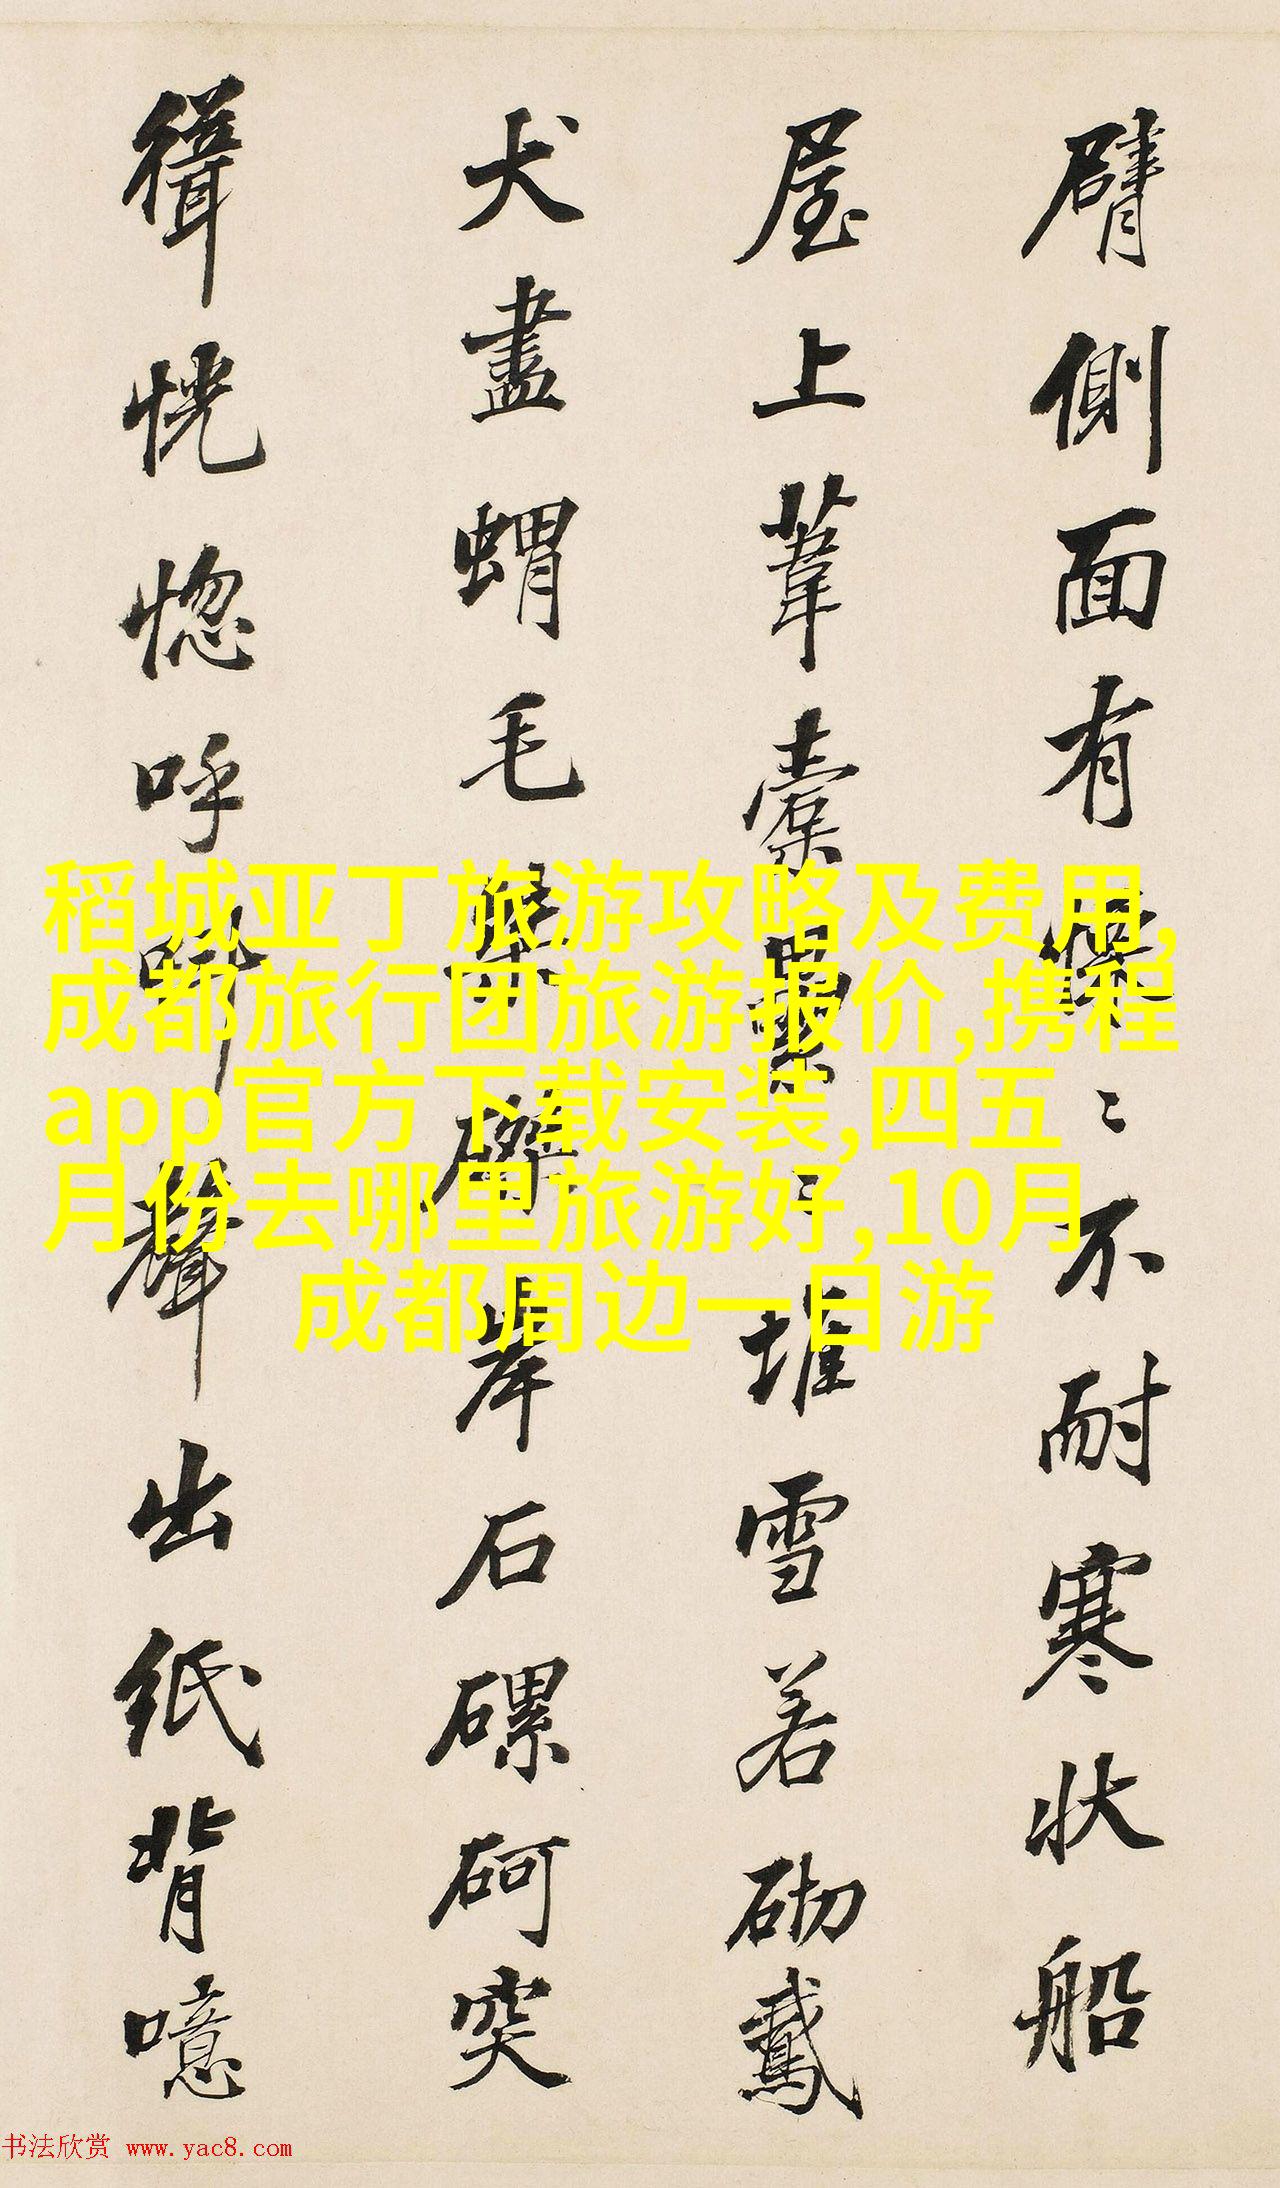 臂側面有懔〻不耐寒状船
屋上葦橐纍〻堆雪若砌鵞
犬盡蝟毛磔礔岸石磥砢突
𦂶恍惚呼聲出紙背噫
稻城亚丁旅游攻略及费用,
成都旅行团旅游报价,携程
app官方下载安装,四五
月份去哪里旅游好,10月
成都周边一日游
书法欣赏 www.yac8.com